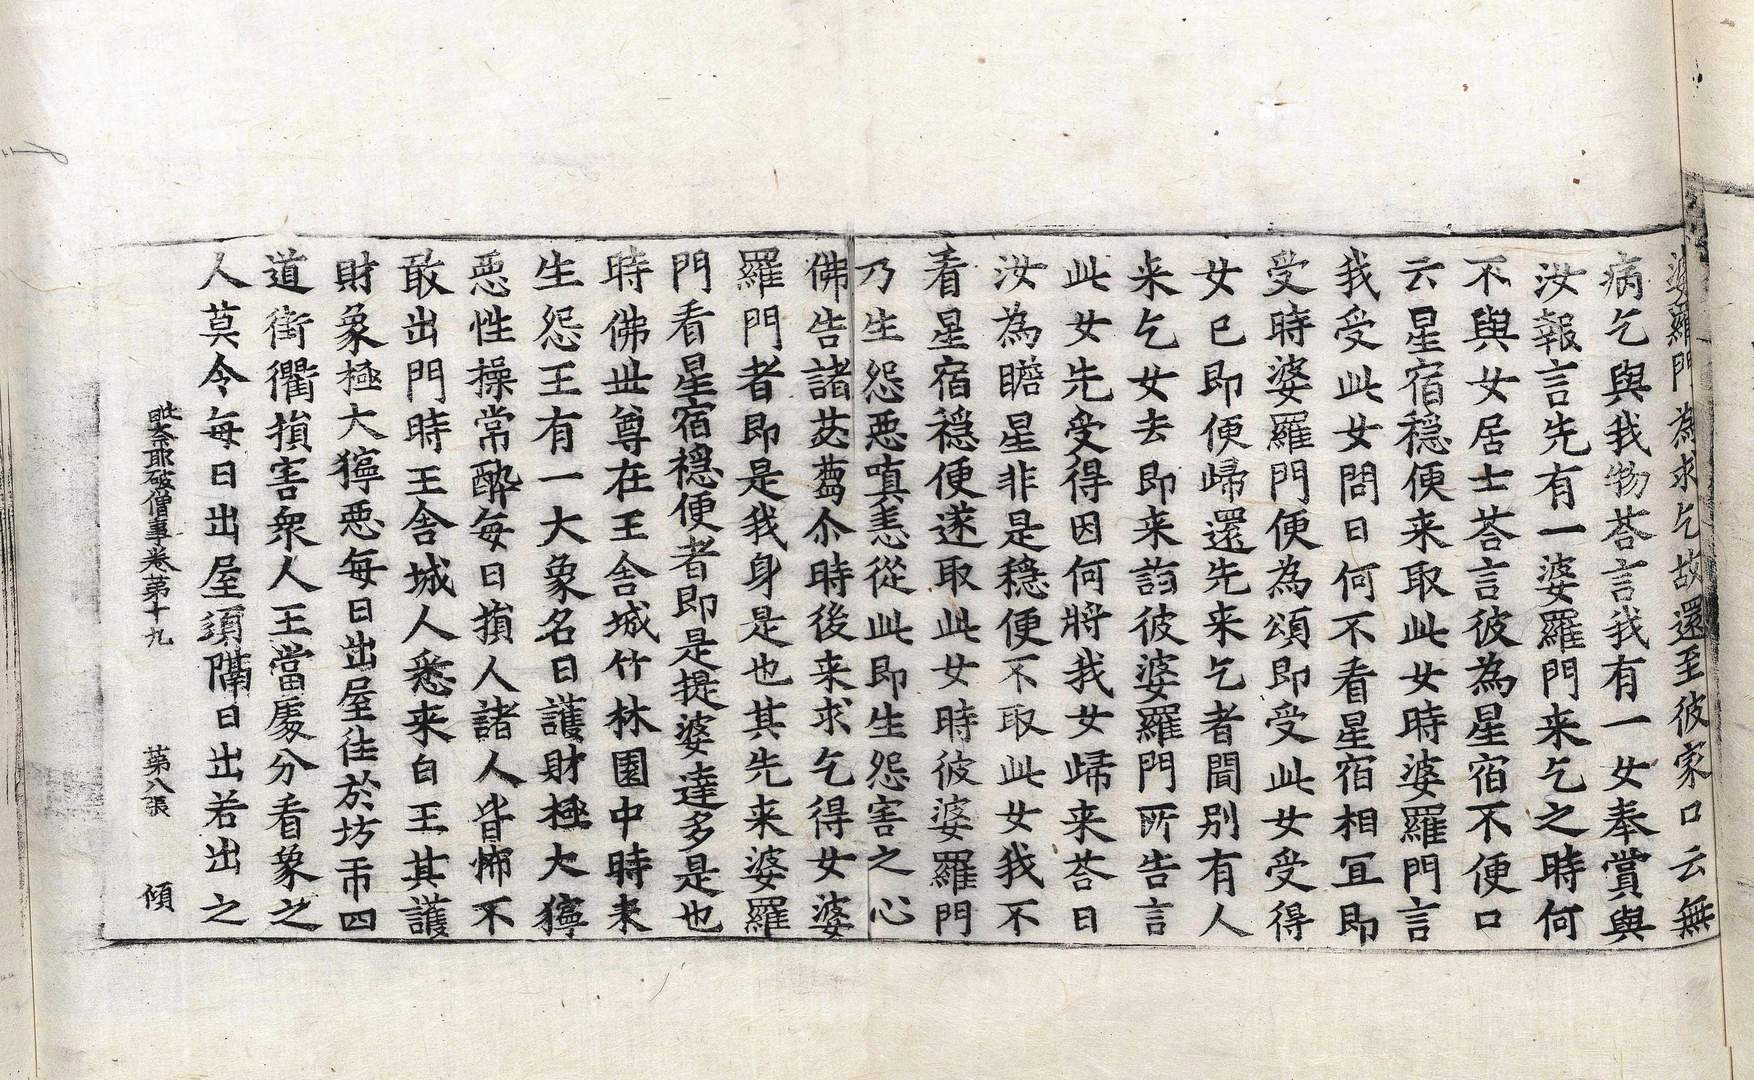 婆羅門為求乞故還至彼家口云無
病乞與我物荅言我有一女奉賞與
汝報言先有一婆羅門来乞之時何
不與女居士荅言彼為星宿不便口
云星宿穩便来取此女時婆羅門言
我受此女問曰何不看星宿相冝即
受時婆羅門便為頌即受此女受得
女已即便歸還先来乞者聞別有人
来乞女去即来詣彼婆羅門所告言
此女先受得因何將我女歸来荅曰
汝為瞻星非是穩便不取此女我不
看星宿穩便遂取此女時彼婆羅門
乃生怨惡嗔恚從此即生怨害之心
佛告諸苾蒭尒時後来求乞得女婆
羅門者即是我身是也其先来婆羅
門看星宿穩便者即是提婆達多是也
時佛世尊在王舍城竹林園中時未
生怨王有一大象名曰護財極大獰
惡性操常醉每日損人諸人皆怖不
敢出門時王舍城人悉来白王其護
財象極大獰惡每日出屋往於坊市四
道街衢損害衆人王當處分看象之
人莫令每日出屋須隔日出若出之
毗奈耶破僧事卷第十九 第八張 傾